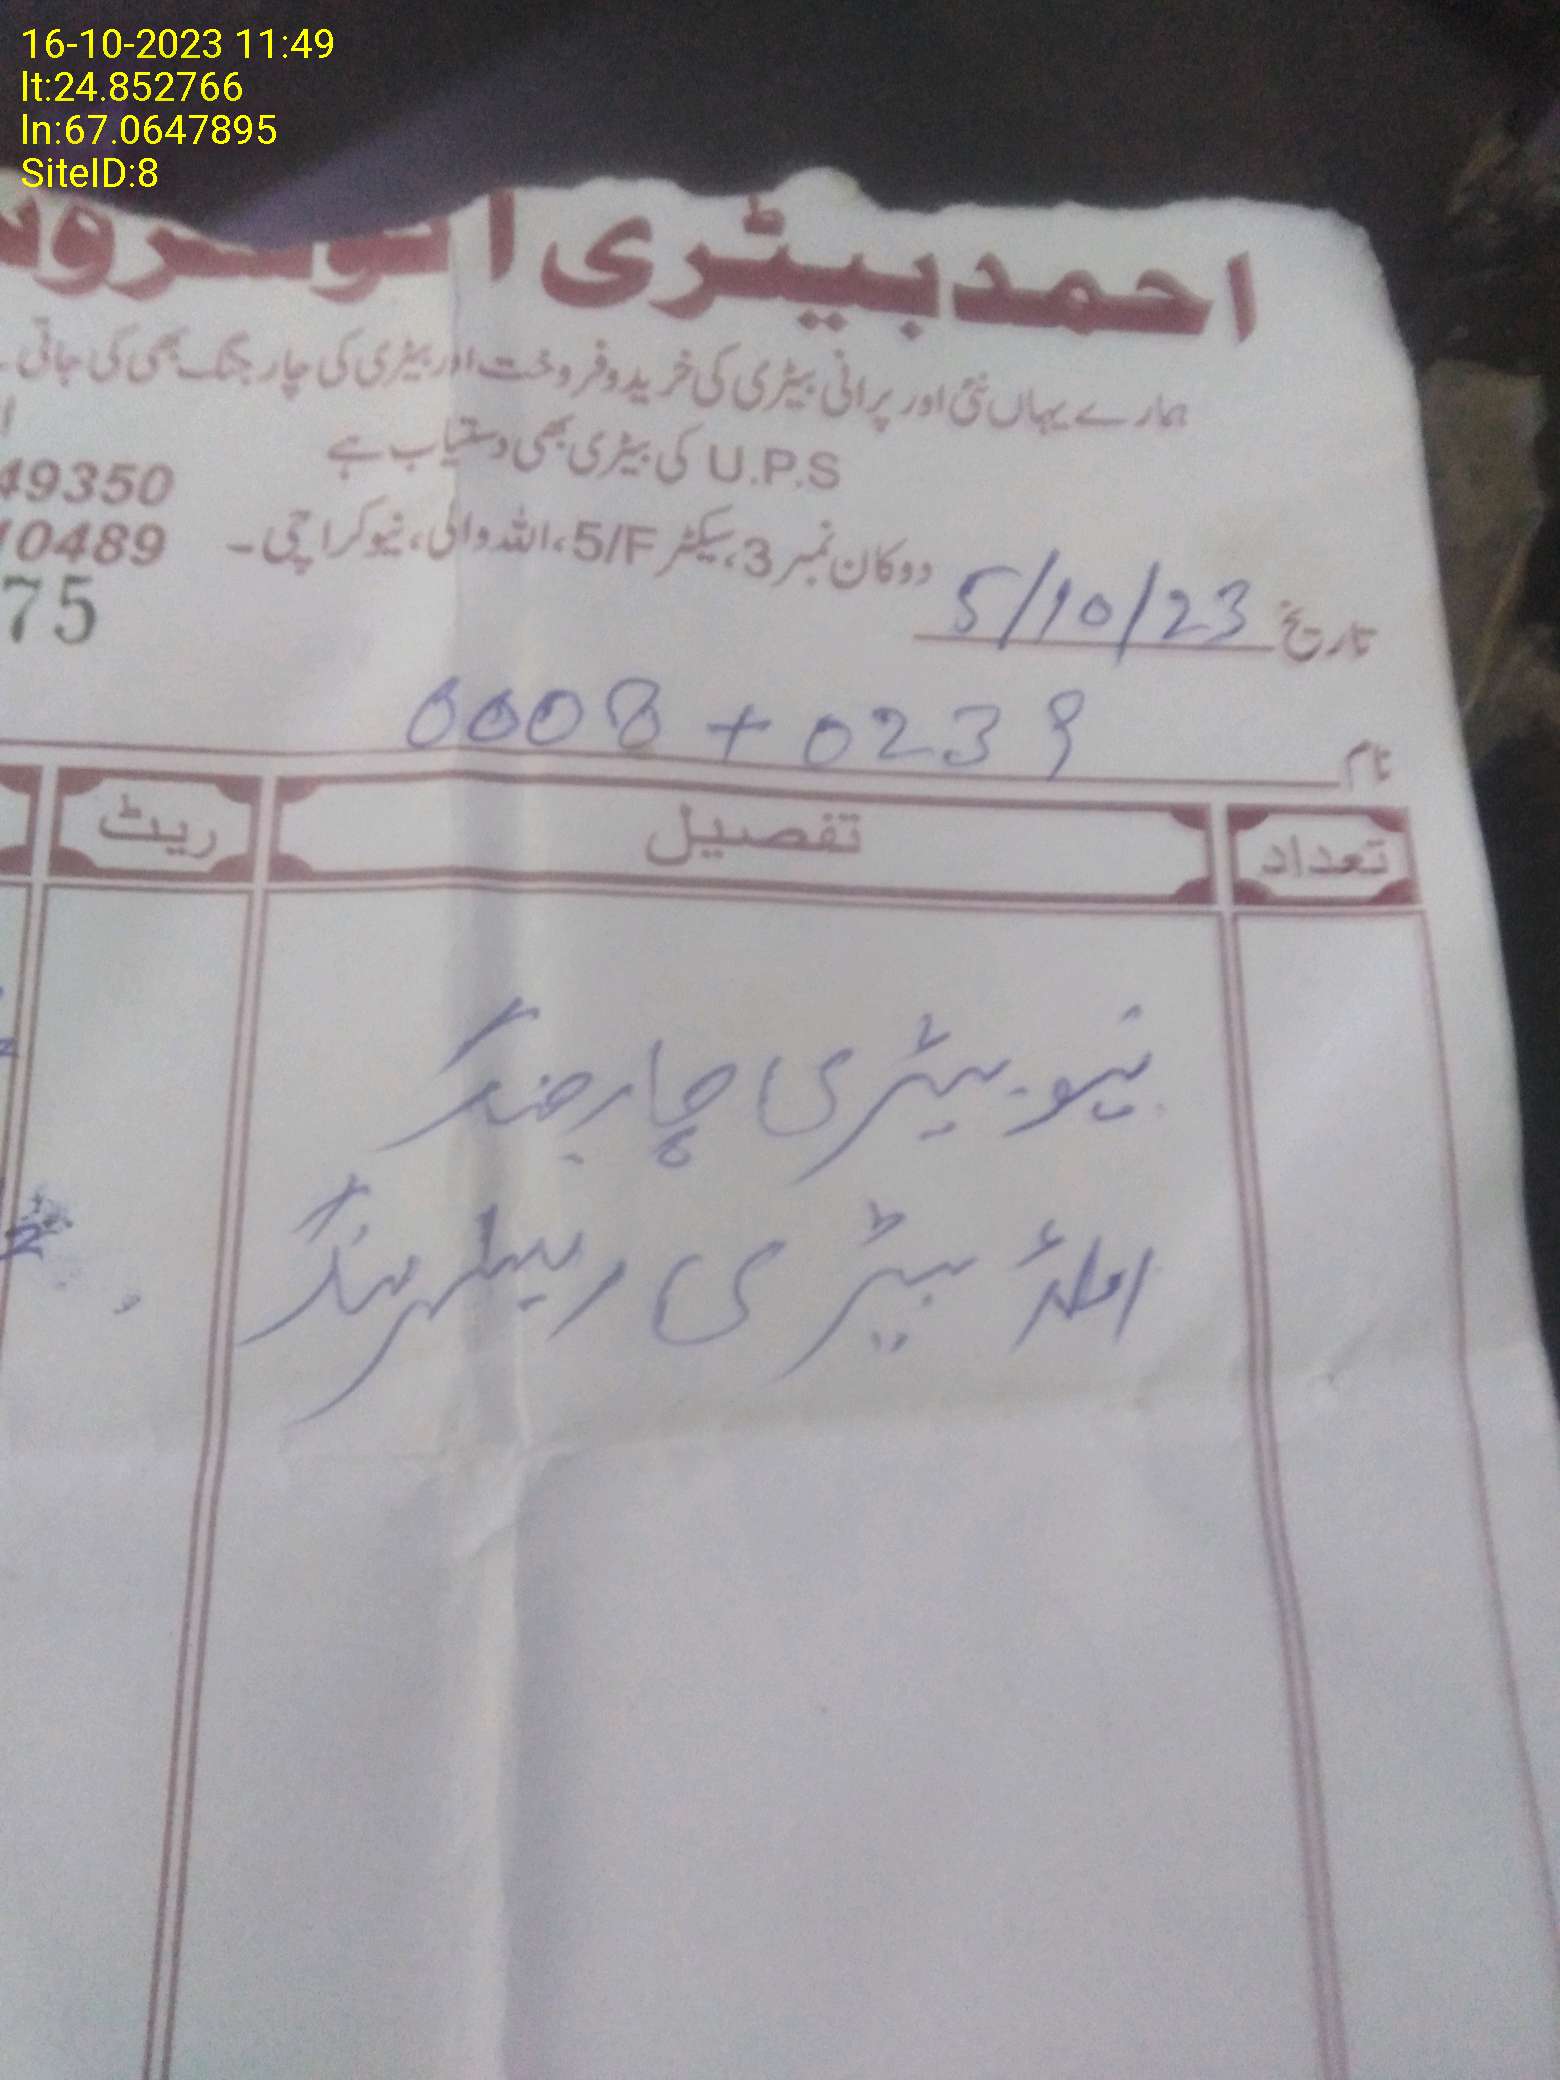 16-10-2023 11:49
lt:24.852766
ln:67.0647895
SiteID:8
احمد بیٹری
ہمارے یہاں نئی اور پرانی بیٹری کی خرید و فروخت اور بیٹری کی چارجنگ بھی کی جاتی
U.P.S کی بیٹری بھی دستیاب ہے
49350
دوکان نمبر 3، سیکٹر 5/F، اللہ والی، نیو کراچی۔
10489
تاریخ 5/10/23
75
نام 0008 + 0239
تعداد تفصیل ریٹ
نیو بیٹری چارجنگ
اولڈ بیٹری